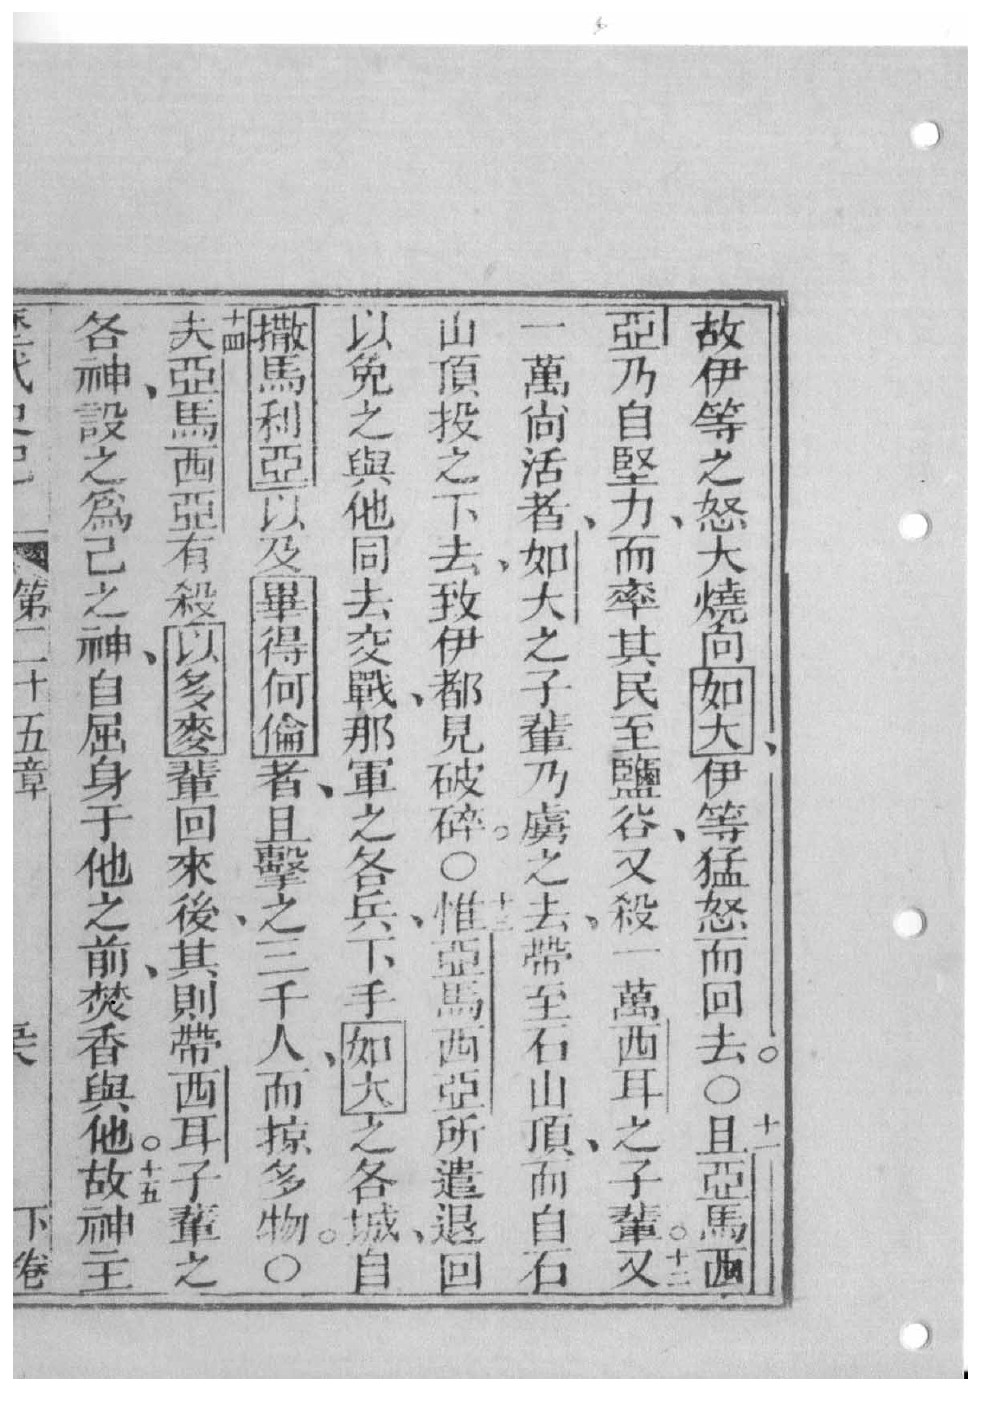 故伊等之怒大燒向如大、伊等猛怒而回去。〇十一且亞馬西
亞乃自堅力、而率其民至鹽谷、又殺一萬西耳之子輩。十二又
一萬尚活者、如大之子輩乃虜之去、帶至石山頂、而自石
山頂投之下去、致伊都見破碎。〇十三惟亞馬西亞所遣退回、
以免之與他同去交戰、那軍之各兵、下手如大之各城、自
撒馬利亞以及畢得何倫者、且擊之三千人、而掠多物。〇
十四夫亞馬西亞有殺以多麥輩回來後、其則帶西耳子輩之
各神、設之為己之神、自屈身于他之前、焚香與他。十五故神主
歷代史記 第二十五章 下卷